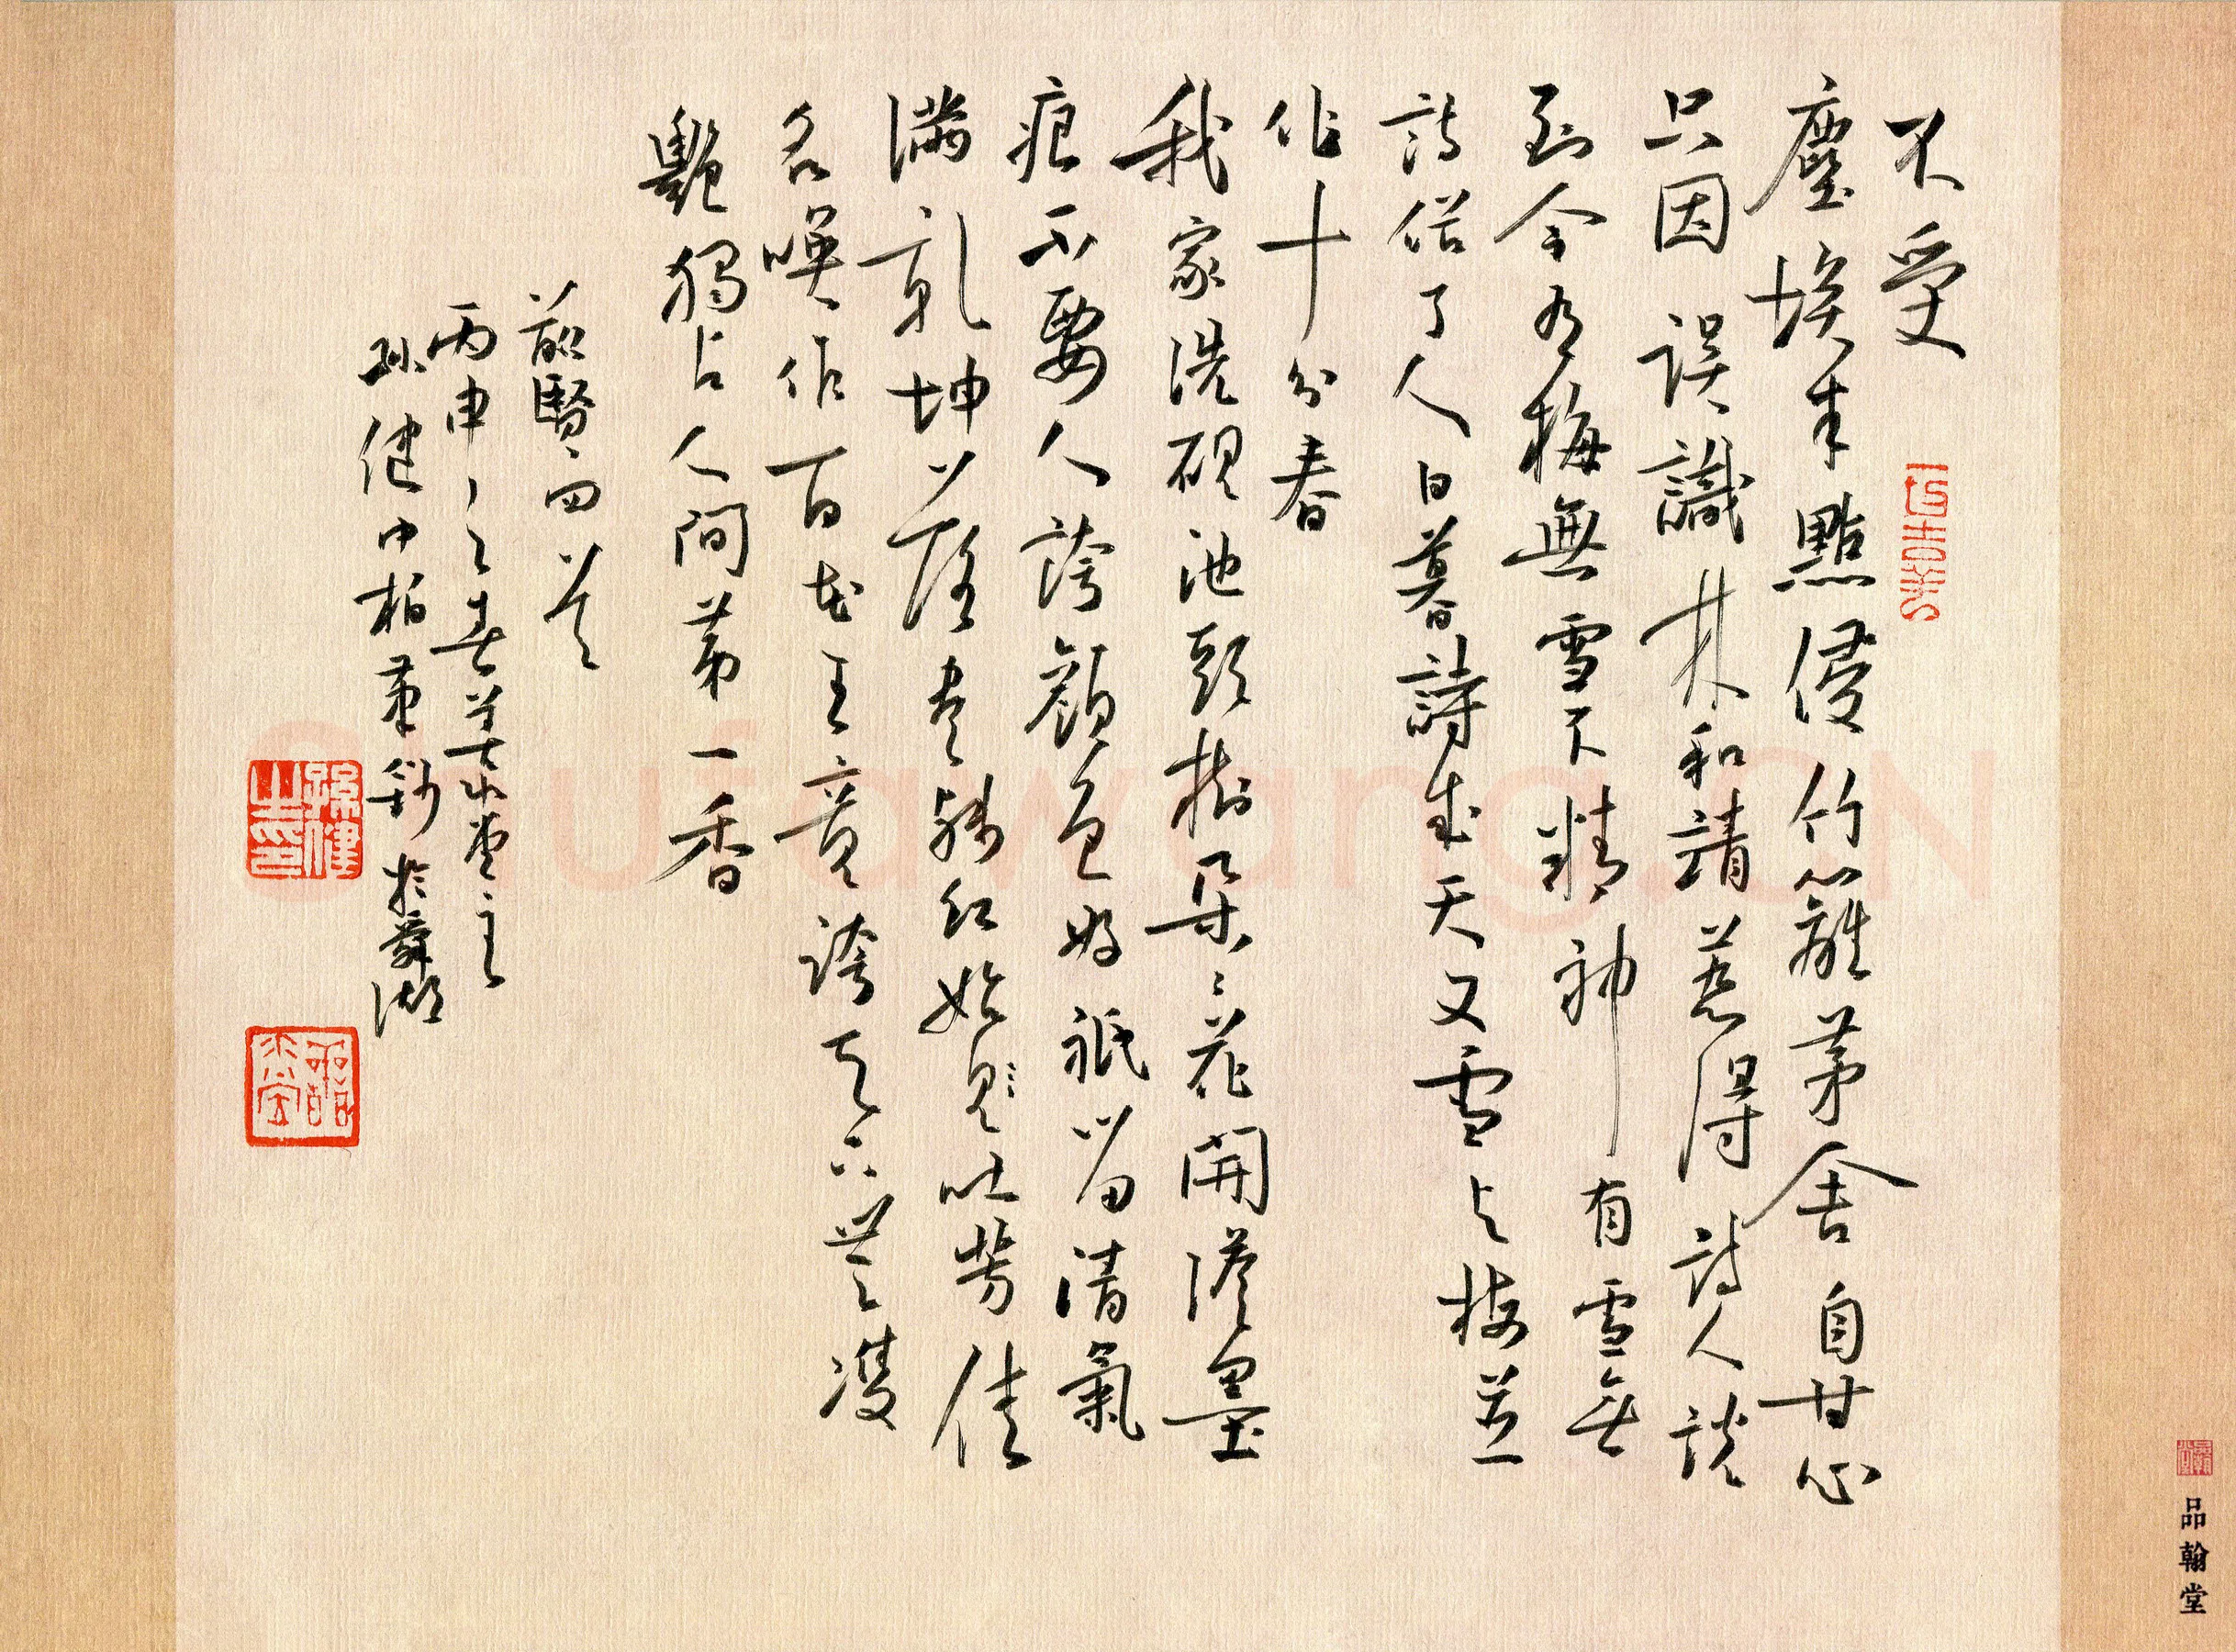 不受
塵埃半點侵竹籬茅舍自甘心
只因誤識林和靖惹得詩人談
到今有梅無雪不精神有雪無
詩俗了人日暮詩成天又雪與梅並
作十分春
我家洗硯池頭樹朵朵花開淡墨
痕不要人誇顏色好祇留清氣
滿乾坤落盡殘紅始見吐芳佳
名喚作百花王競誇天下無雙
艷獨占人間第一香
前賢句四首
丙申之春
孫健中柏筆鈔於舜湖
品翰堂